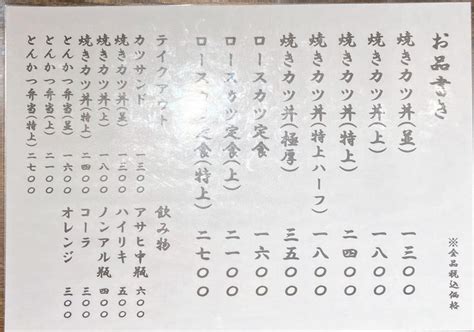 お品書き
※全品税込価格
焼きカツ丼(並) 一三〇〇
焼きカツ丼(上) 一八〇〇
焼きカツ丼(特上) 二四〇〇
焼きカツ丼(特上ハーフ) 一八〇〇
焼きカツ丼(極厚) 三五〇〇
ロースカツ定食 一六〇〇
ロースカツ定食(上) 二一〇〇
ロースカツ定食(特上) 二七〇〇
テイクアウト
カツサンド 一三〇〇
焼きカツ丼(並) 一三〇〇
焼きカツ丼(上) 一八〇〇
焼きカツ丼(特上) 二四〇〇
とんかつ弁当(並) 一六〇〇
とんかつ弁当(上) 二一〇〇
とんかつ弁当(特上) 二七〇〇
飲み物
アサヒ中瓶 六〇〇
ハイリキ 五〇〇
ノンアル瓶 四〇〇
コーラ 三〇〇
オレンジ 三〇〇